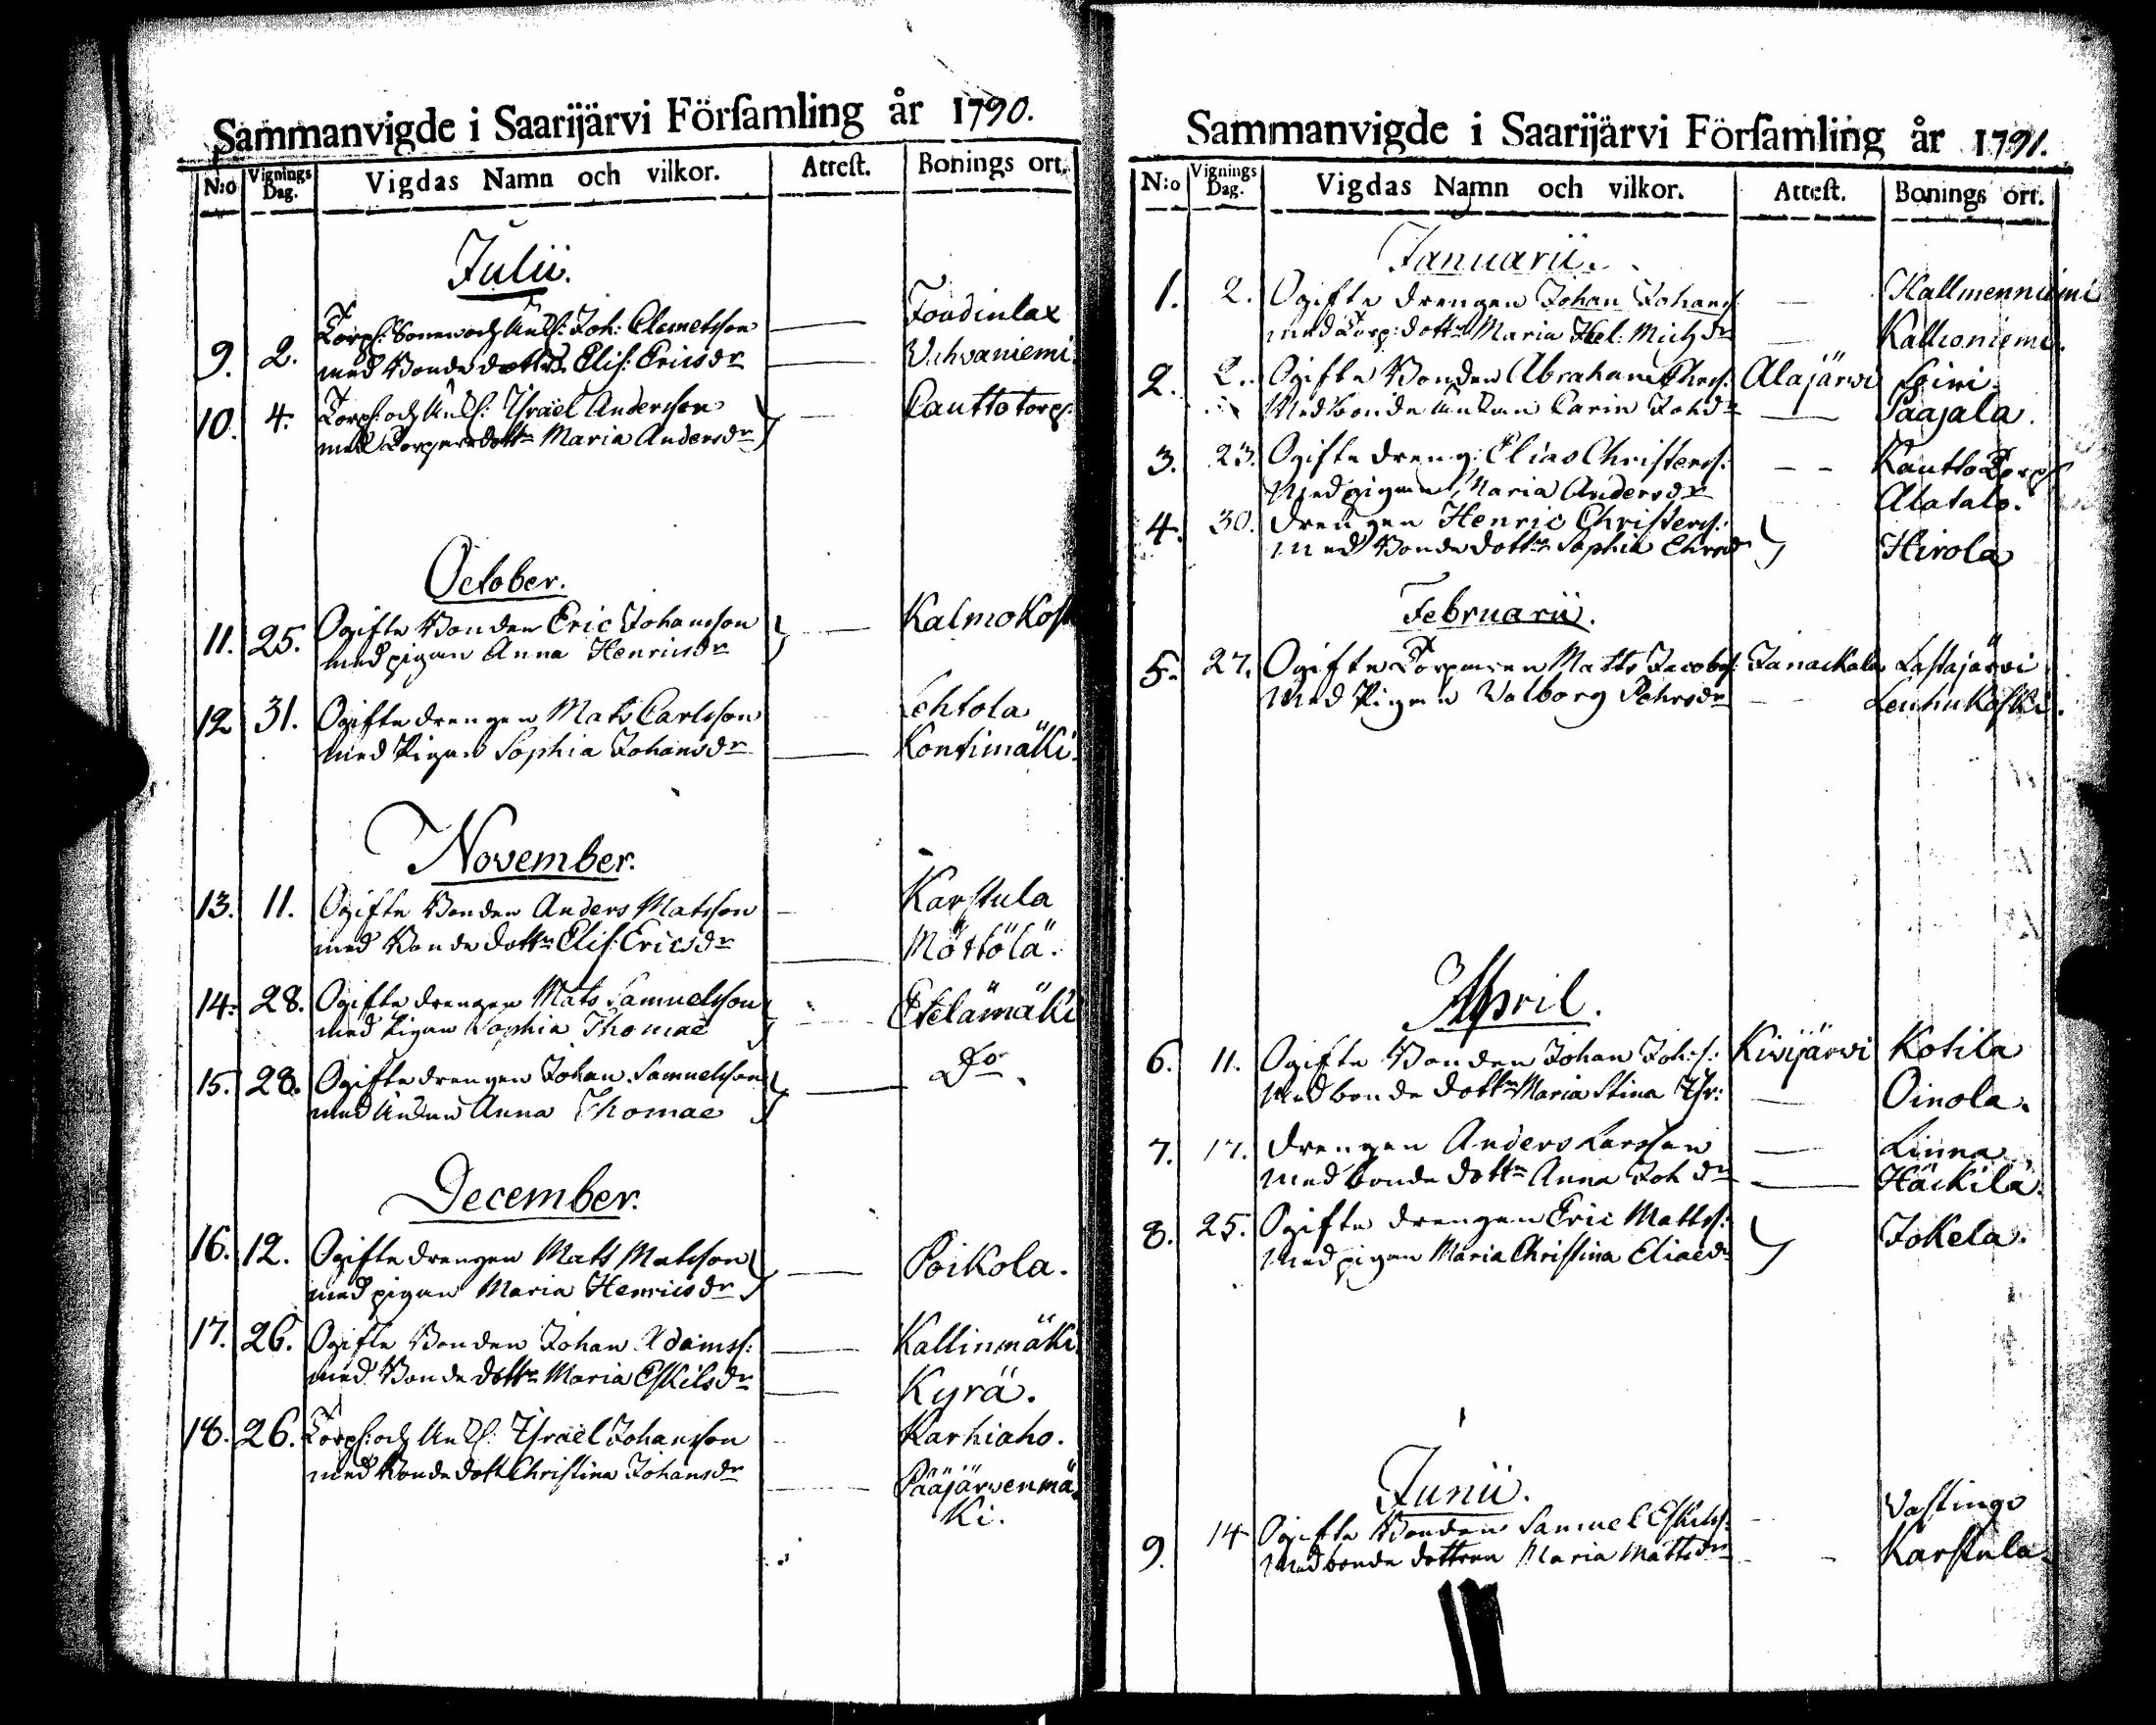 Sammanvigde i Saarijärvi Förſamling år 1790.
N:o Vignings Dag. Vigdas Namn och vilkor. Atteſt. Bonings ort.
Julii.
9. 2. Torp: Sonen och Enkl: Joh: Clemetsson — Foudinlax
med Bonde dottr Elis: Ericsdr — Vahvaniemi
10. 4. Torp: och Enkl: Israël Andersson — Cautto torp:
med Torpare dottr Maria Andersdr
October.
11. 25. Ogifte Bonden Eric Johansson — Kalmokosk
med pigan Anna Henricsdr
12 31. Ogifte drengen Mats Carlsson Lehtola
med Pigan Sophia Johansdr — Kontimäki.
November.
13. 11. Ogifte Bonden Anders Matsson — Karstula
med Bonde dottr Elis: Ericsdr — Möttölä.
14. 28. Ogifte drengen Mats Samuelsson — Etelämäki
med Pigan Sophia Thomae
15. 28. Ogifte drengen Johan Samuelsson — Do
med Enkan Anna Thomae
December.
16. 12. Ogifte drengen Mats Matsson — Poikola.
med pigan Maria Henricsdr
17. 26. Ogifte Bonden Johan Adamss: — Kallinmäki
med Bonde dottr Maria Eskilsdr — Kyrä.
18. 26. Torp: och Enkl: Israël Johansson Karhiaho.
med Bonde dott Christina Johansdr — Pääjärvenmä
ki.
Sammanvigde i Saarijärvi Förſamling år 1791.
N:o Vignings Dag. Vigdas Namn och vilkor. Atteſt. Bonings ort.
Januarii.
1. 2. Ogifte drengen Johan Johans: — Kallmenniemi
med Torp: dottr Maria Hel: Mich dr — Kalkoniemi.
2. 2. Ogifte Bonden Abraham Alajärvi
Med bonde Enkan Carin Johdr — Paajala.
3. 23. Ogifte dreng: Elias Christers: — Kautto Torp
Med pigan Maria Andersdr Alatalo.
4. 30. drengen Henric Christers: Hirola
med Bonde dottr Sophia
Februarii.
5. 27. Ogifte Torparen Matts Jacobs: Janackala Lastajärvi
Med Pigan Valborg Pehrsdr — Leuhukoski.
April.
6. 11. Ogifte Bonden Johan Joh:s: Kivijärvi Kotila
Med bonde dottr Maria Stina Isr: — Oinola.
7. 17. drengen Anders Larsson — Linna
med bonde dottr Anna Joh dr — Häckilä.
8. 25. Ogifte drengen Eric Matts: Jokela.
Med pigan Maria Christina Eliaedr
Junii.
9. 14 Ogifte Bonden Samuel Eskils: Vastingo
Med bonde dottren Maria Mattsdr — Karstula.